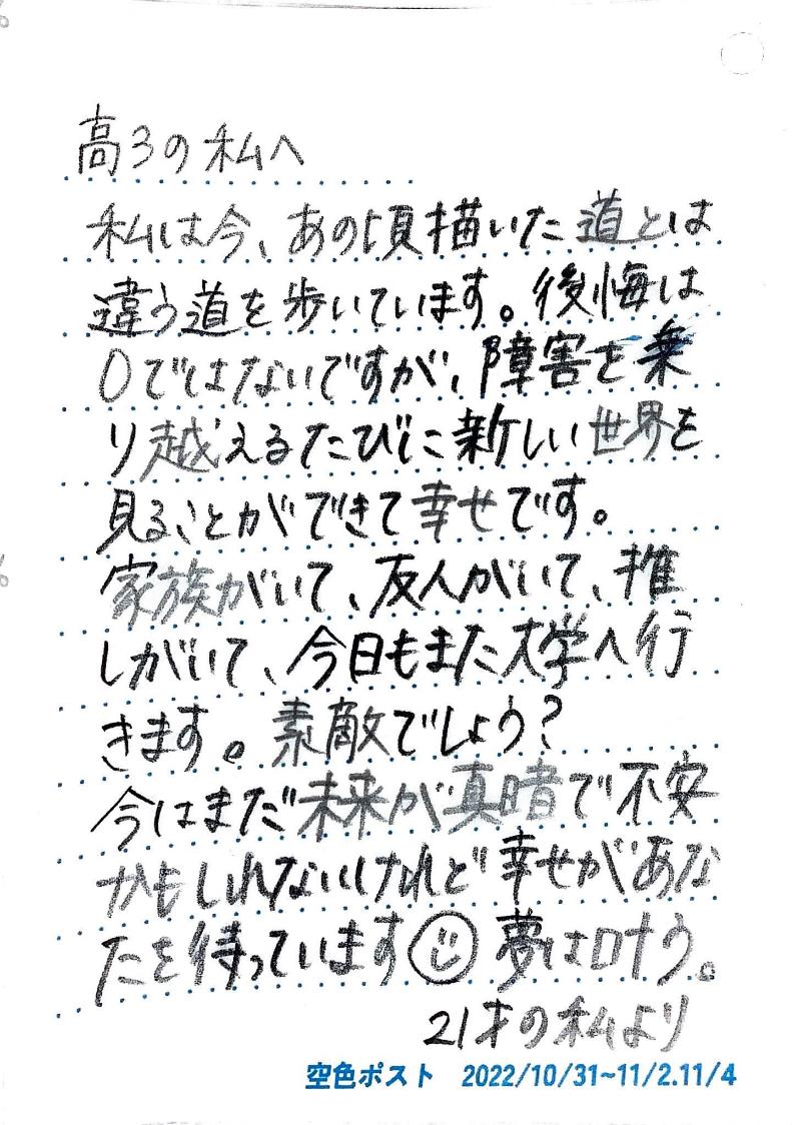 高3の私へ
私は今、あの頃描いた道とは
違う道を歩いています。後悔は
0ではないですが、障害を乗
り越えるたびに新しい世界を
見ることができて幸せです。
家族がいて、友人がいて、推
しがいて、今日もまた大学へ行
きます。素敵でしょう?
今はまだ未来が真暗で不安
かもしれないけれど幸せがあな
たを待っています☺夢は叶う。
21才の私より
空色ポスト 2022/10/31~11/2.11/4